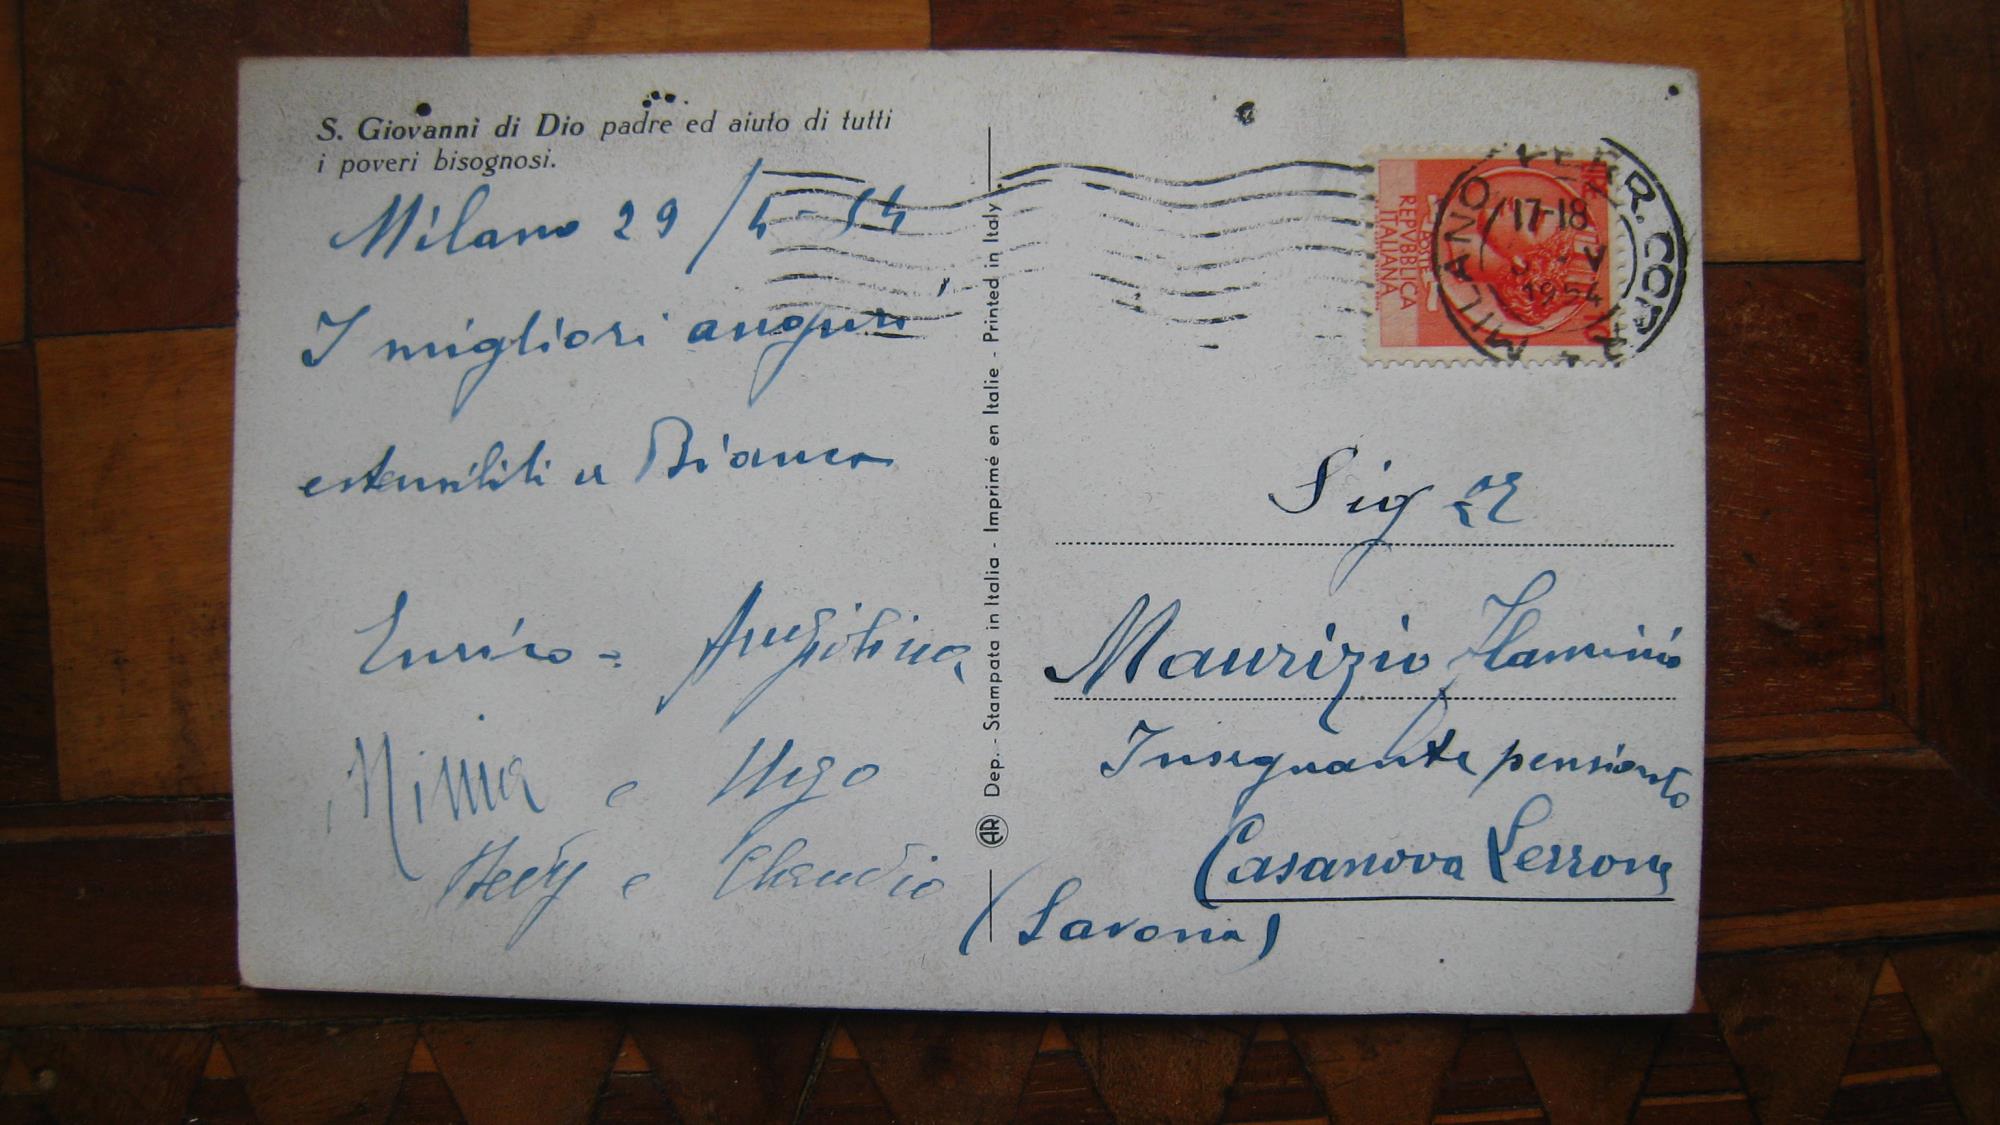 S. Giovanni di Dio padre ed aiuto di tutti
i poveri bisognosi.
Milano 29/4-54
I migliori auguri
estensibili a Bianca
Enrico - Angiolina
Nina e Ugo
e Claudio
Dep. - Stampata in Italia - Imprimé en Italie - Printed in Italy
AR
POSTE
REPVBBLICA
ITALIANA
MILANO
FERR. COR
17-18
V
1954
Sig
Maurizio Flaminio
Insegnante pensionato
Casanova Lerrone
(Savona)